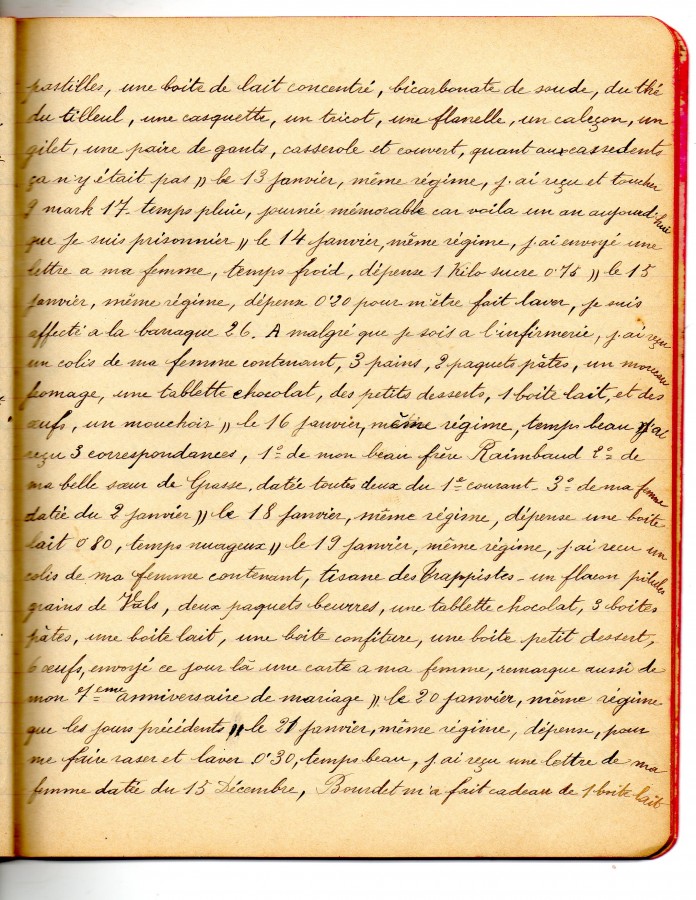 pastilles, une boite de lait concentré, bicarbonate de soude, du thé
du tilleul, une casquette, un tricot, une flanelle, un caleçon, un
gilet, une paire de gants, casserole et couvert, quant aux cassedents
ça n'y était pas " le 13 janvier, même régime, j'ai reçu et toucher
9 mark 17 temps pluie, journée mémorable car voila un an aujourd'hui
que je suis prisonnier " le 14 janvier, même régime, j'ai envoyé une
lettre a ma femme, temps froid, dépense 1 Kilo sucre 0.75 " le 15
janvier, même régime, dépense 0'20 pour m'être fait laver, je suis
affecté a la baraque 26. A malgré que je sois a l'infirmerie, j'ai reçu
un colis de ma femme contenant, 3 pains, 2 paquets pâtes, un morceau
fromage, une tablette chocolat, des petits desserts, 1 boite lait, et des
œufs, un mouchoir " le 16 janvier, même régime, temps beau " j'ai
reçu 3 correspondances, 1° de mon beau frère Raimbaud 2° de
ma belle sœur de Grasse. datée toutes deux du 1e courant - 3° de ma femme
datée du 2 janvier " le 18 janvier, même régime, dépense une boite
lait 0'80, temps nuageux " le 19 janvier, même régime, j'ai recu un
colis de ma femme contenant, tisane des Trappistes - un flacon pilules
grains de Vals, deux paquets beurres, une tablette chocolat, 3 boites
pâtes, une boite lait, une boite confiture, une boite petit dessert,
6 œufs, envoyé ce jour là une carte a ma femme, remarque aussi de
mon eme anniversaire de mariage " le 20 janvier, même régime
que les jours précédents " le 21 janvier, même régime, dépense, pour
me faire raser et laver 0'30, temps beau, j'ai reçu une lettre de ma
femme datée du 15 Décembre, Bourdet m'a fait cadeau de 1 boite lait